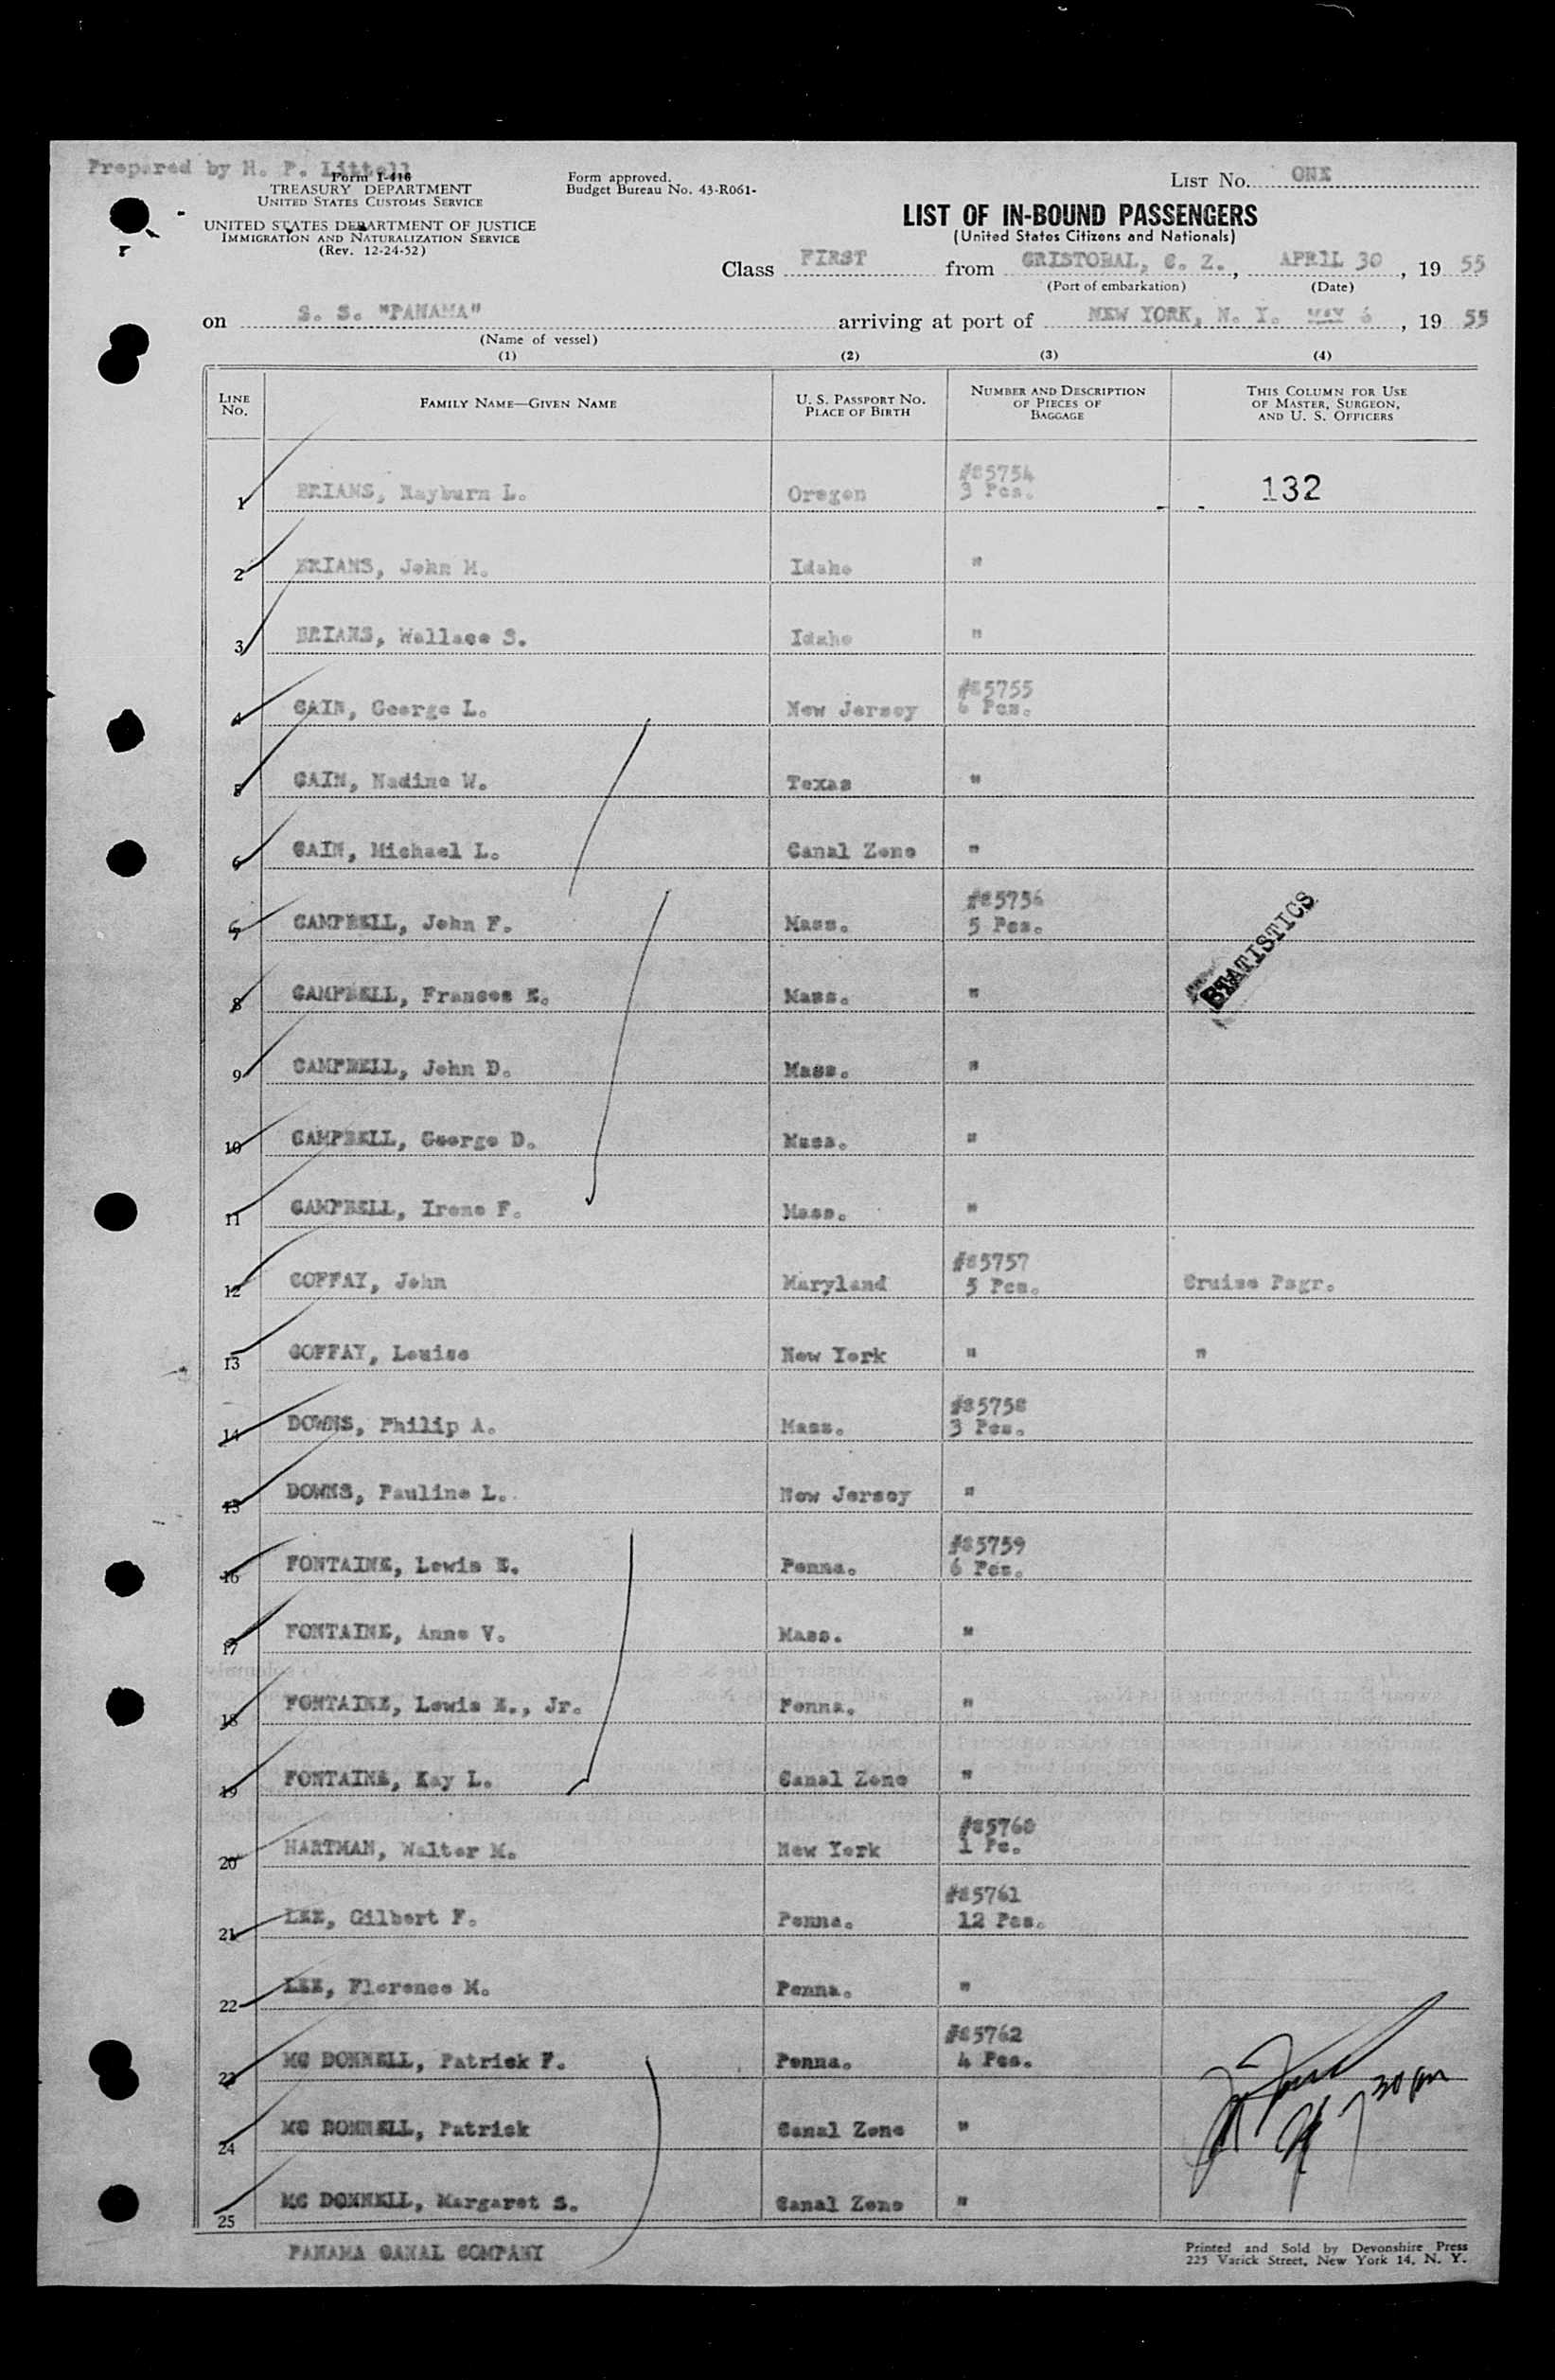 Prepared by H. P. Littell
Form I-418
TREASURY DEPARTMENT
UNITED STATES CUSTOMS SERVICE
UNITED STATES DEPARTMENT OF JUSTICE
IMMIGRATION AND NATURALIZATION SERVICE
(Rev. 12-24-52)
Form approved.
Budget Bureau No. 43-R061-
LIST NO. ONE
LIST OF IN-BOUND PASSENGERS
(United States Citizens and Nationals)
Class FIRST from CRISTOBAL, C. Z., APRIL 30, 19 55
(Port of embarkation) (Date)
on S. S. "PANAMA" arriving at port of NEW YORK, N. Y. MAY 6, 19 55
(Name of vessel)
(1) (2) (3) (4)
LINE NO. FAMILY NAME—GIVEN NAME U. S. PASSPORT NO. PLACE OF BIRTH NUMBER AND DESCRIPTION OF PIECES OF BAGGAGE THIS COLUMN FOR USE OF MASTER, SURGEON, AND U. S. OFFICERS
1 BRIANS, Rayburn L. Oregon #85754 3 Pcs. 132
2 BRIANS, John M. Idaho "
3 BRIANS, Wallace S. Idaho "
4 CAIN, George L. New Jersey #85755 6 Pcs.
5 CAIN, Nadine W. Texas "
6 CAIN, Michael L. Canal Zone "
7 CAMPBELL, John F. Mass. #85756 5 Pcs.
8 CAMPBELL, Frances E. Mass. "
STATISTICS
9 CAMPBELL, John D. Mass. "
10 CAMPBELL, George D. Mass. "
11 CAMPBELL, Irene F. Mass. "
12 COFFAY, John Maryland #85757 5 Pcs. Cruise Psgr.
13 COFFAY, Louise New York " "
14 DOWNS, Philip A. Mass. #85758 3 Pcs.
15 DOWNS, Pauline L. New Jersey "
16 FONTAINE, Lewis E. Penna. #85759 6 Pcs.
17 FONTAINE, Anne V. Mass. "
18 FONTAINE, Lewis E., Jr. Penna. "
19 FONTAINE, Kay L. Canal Zone "
20 HARTMAN, Walter M. New York #85760 1 Pc.
21 LEE, Gilbert F. Penna. #85761 12 Pcs.
22 LEE, Florence M. Penna. "
23 MC DONNELL, Patrick F. Penna. #85762 4 Pcs.
24 MC DONNELL, Patrick Canal Zone "
25 MC DONNELL, Margaret S. Canal Zone "
PANAMA CANAL COMPANY
Printed and Sold by Devonshire Press
225 Varick Street, New York 14, N. Y.